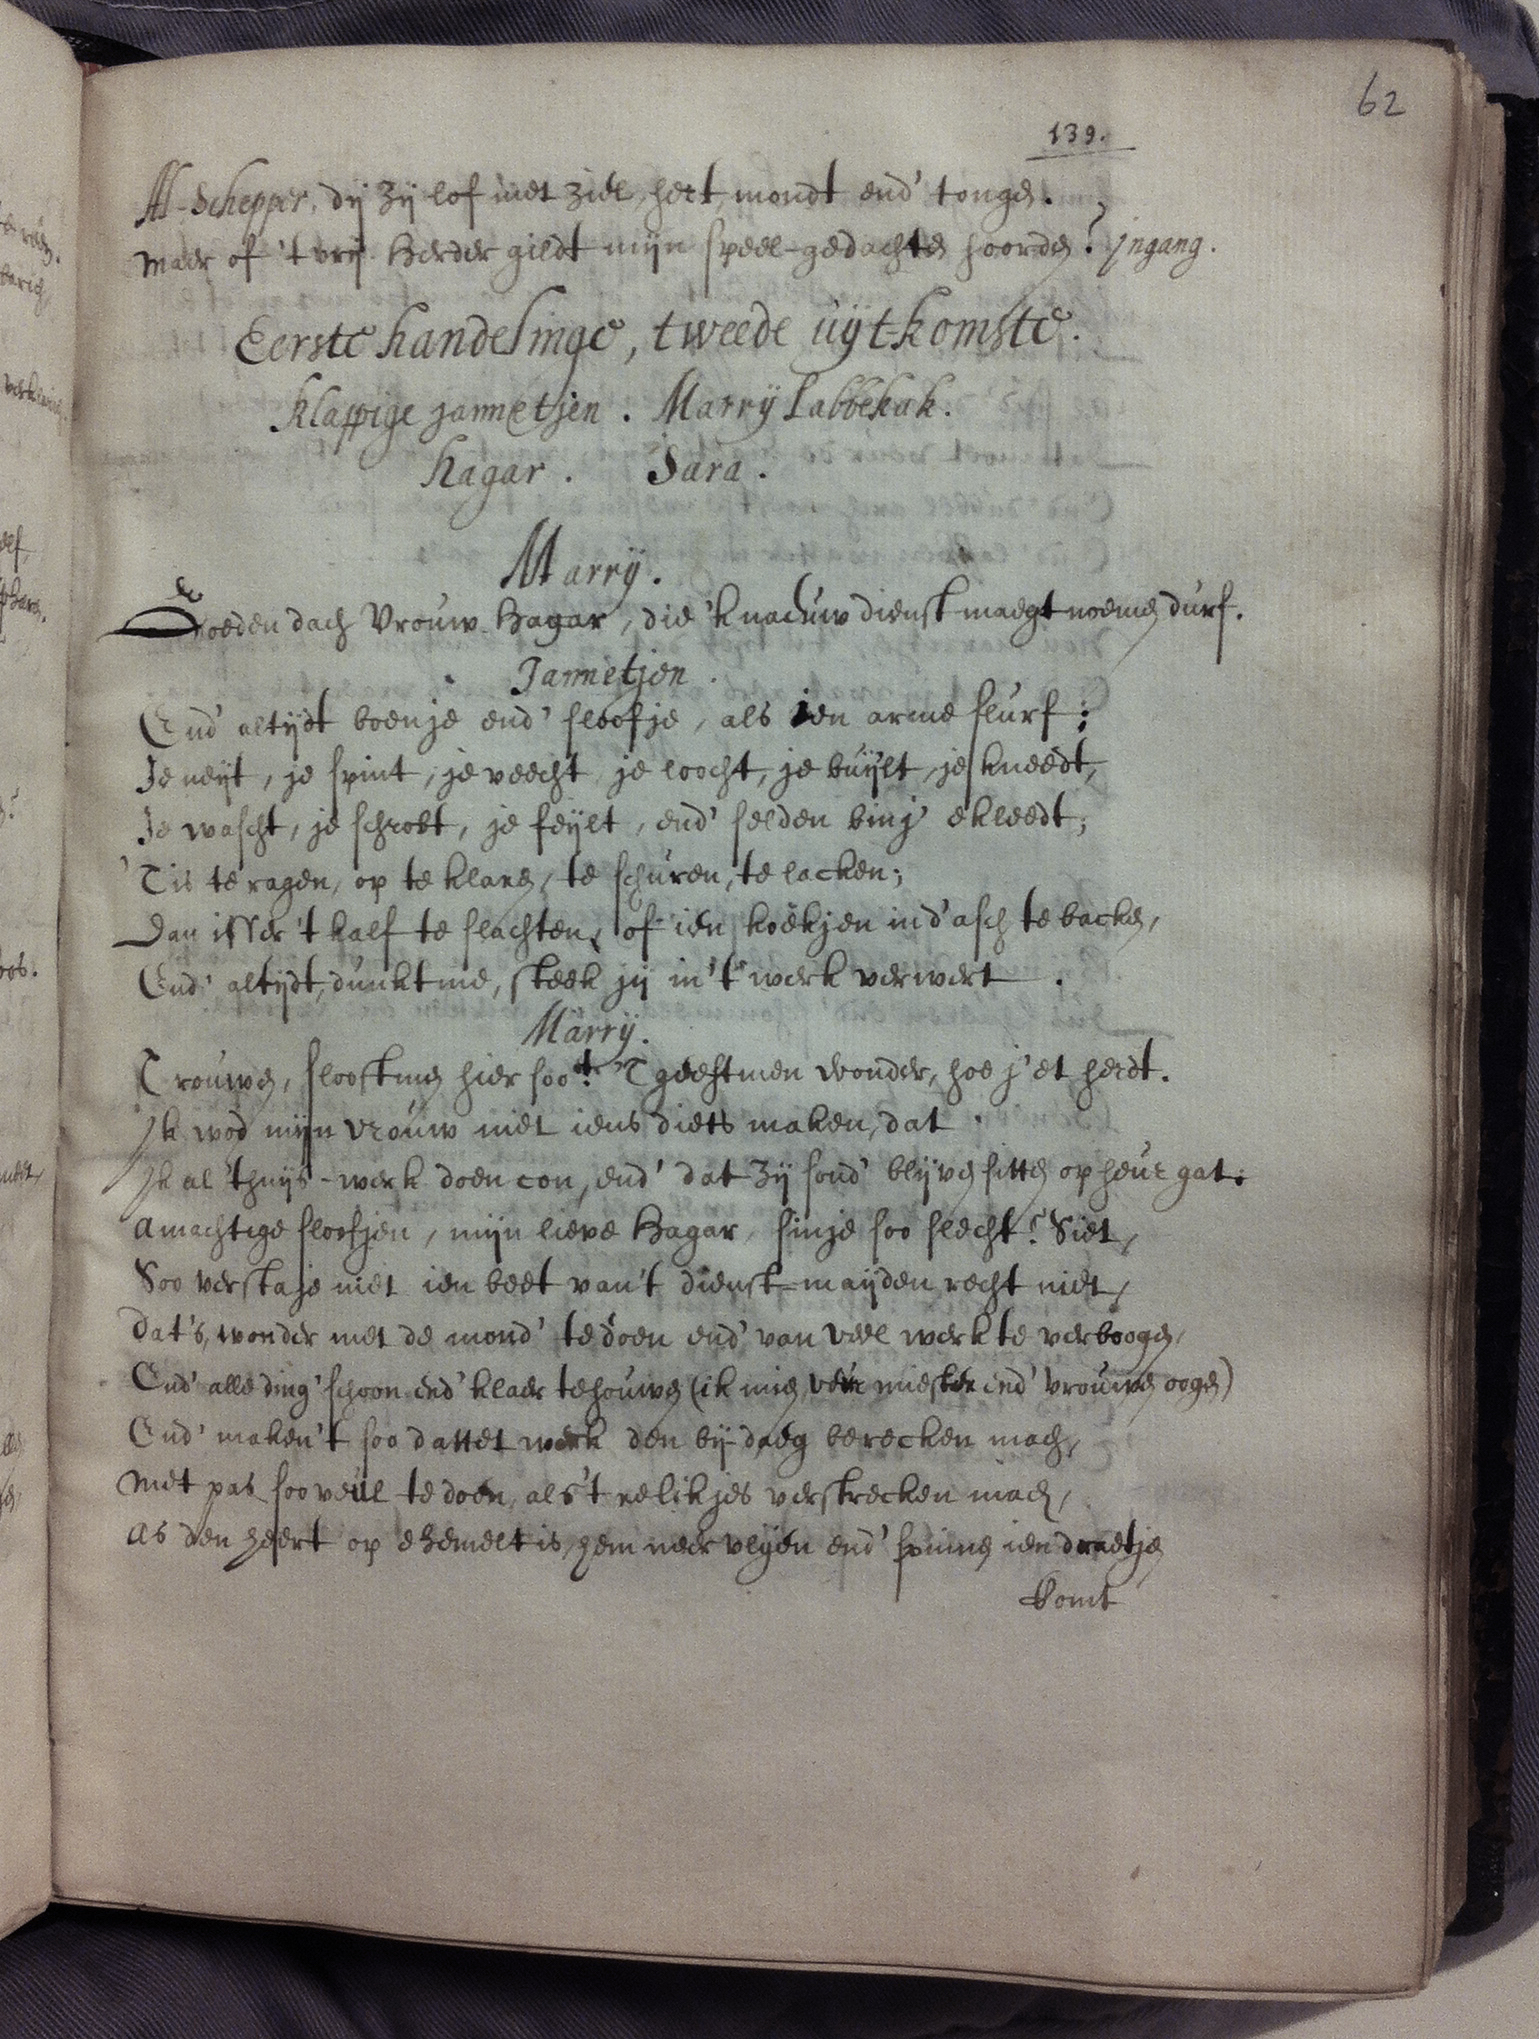 62
139.
Al-Schepper, dij zij lof met ziel, hert, mondt end' tongen.
Maer of 't vrij Herder gildt mijn speel-gedachten hoorden? Jngang.
Eerste handelinge, tweede uÿt-komste.
Klappige jannetjen. Marrÿ Labbekak.
Hagar. Sara.
Marrÿ.
Goeden dach Vrouw Hagar, die 'k nacuw dienstmaegt noemen durf.
Jannetjen.
End' altijdt boenje end' sloofje, als ien arme slurf;
Je neyt, je spint, je veecht, je loocht, je buÿlt, je kneedt,
Je wascht, je schrobt, je feÿlt, end' selden binj' ekleedt;
'Tis te ragen, op te klaren, te schuren, te lacken;
Dan isser 't kalf te slachten, of ien koekjen in d'asch te backen,
End' altijdt, dunkt me, steek jij in 't werk verwert.
Marrÿ.
Trouwen, slooft men hier soo? 'T geeft men wonder, hoe j'et herdt.
Jk wod mijn vrouw niet iens diets maken, dat
Jk al 't huÿs-werk doen con, end' dat zij sond' blijven sitten op heur gat.
Amachtige sloofjen, mijn lieve Hagar, sinje soo slecht? Siet,
Soo verstaje niet ien beet van 't dienst-maÿden recht niet,
Dat's, wonder met de mond' te doen end' van veel werk te verboogen,
End' alle ding' schoon end' klaer te houwen (ik mien veur miester end' vrouwen oogen)
End' maken 't soo dattet werk den bij-daeg berecken mach,
Met pas soo veul te doen, als 't relikjes verstrecken mach,
As den heert op ehemelt is, hem neer vlijen end' spinnen ien draetjen
Komt